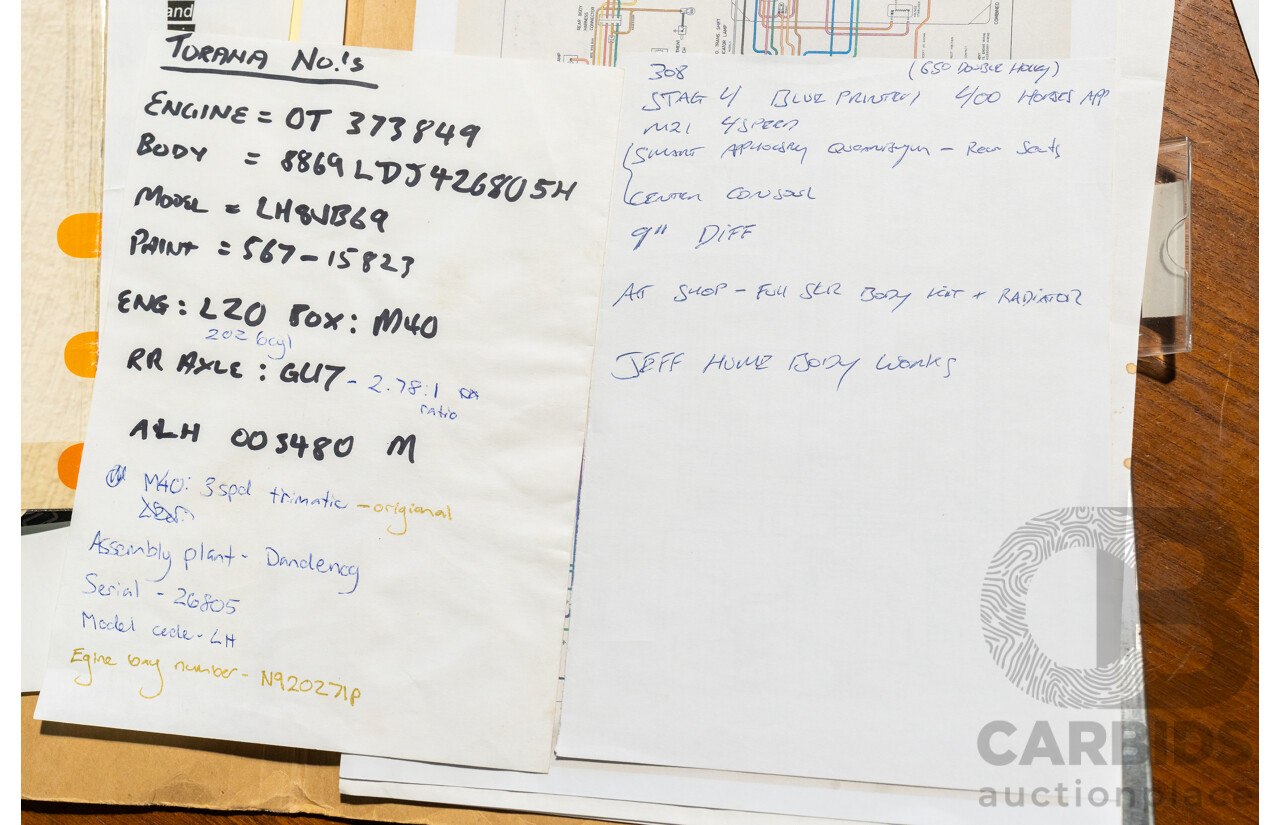 and
REAR BODY
HARNESS
CONNECTOR
COMBINED
TORANA NO.'S
ENGINE = OT 373849
BODY = 8869 LDJ426805H
MODEL = LH8VB69
PAINT = 567-15823
ENG: LZO BOX: M40
202 6cyl
RR AXLE: GU7 - 2.78:1
ratio
ALH 003480 M
M40: 3spd trimatic - origional
Assembly plant - Dandenog
Serial - 26805
Model code - LH
Egine bay number - N920271P
308 (650 DOUBLE HOLLEY)
STAG 4 BLUE PRINTED 400 HORSES APP
M21 4SPEED
SMART - Rear Seats
CENTER CONSOUL
9" DIFF
AT SHOP - FULL SLR BODY KIT + RADIATOR
JEFF HUME BODY WORKS
CARBIDS
auctionplace